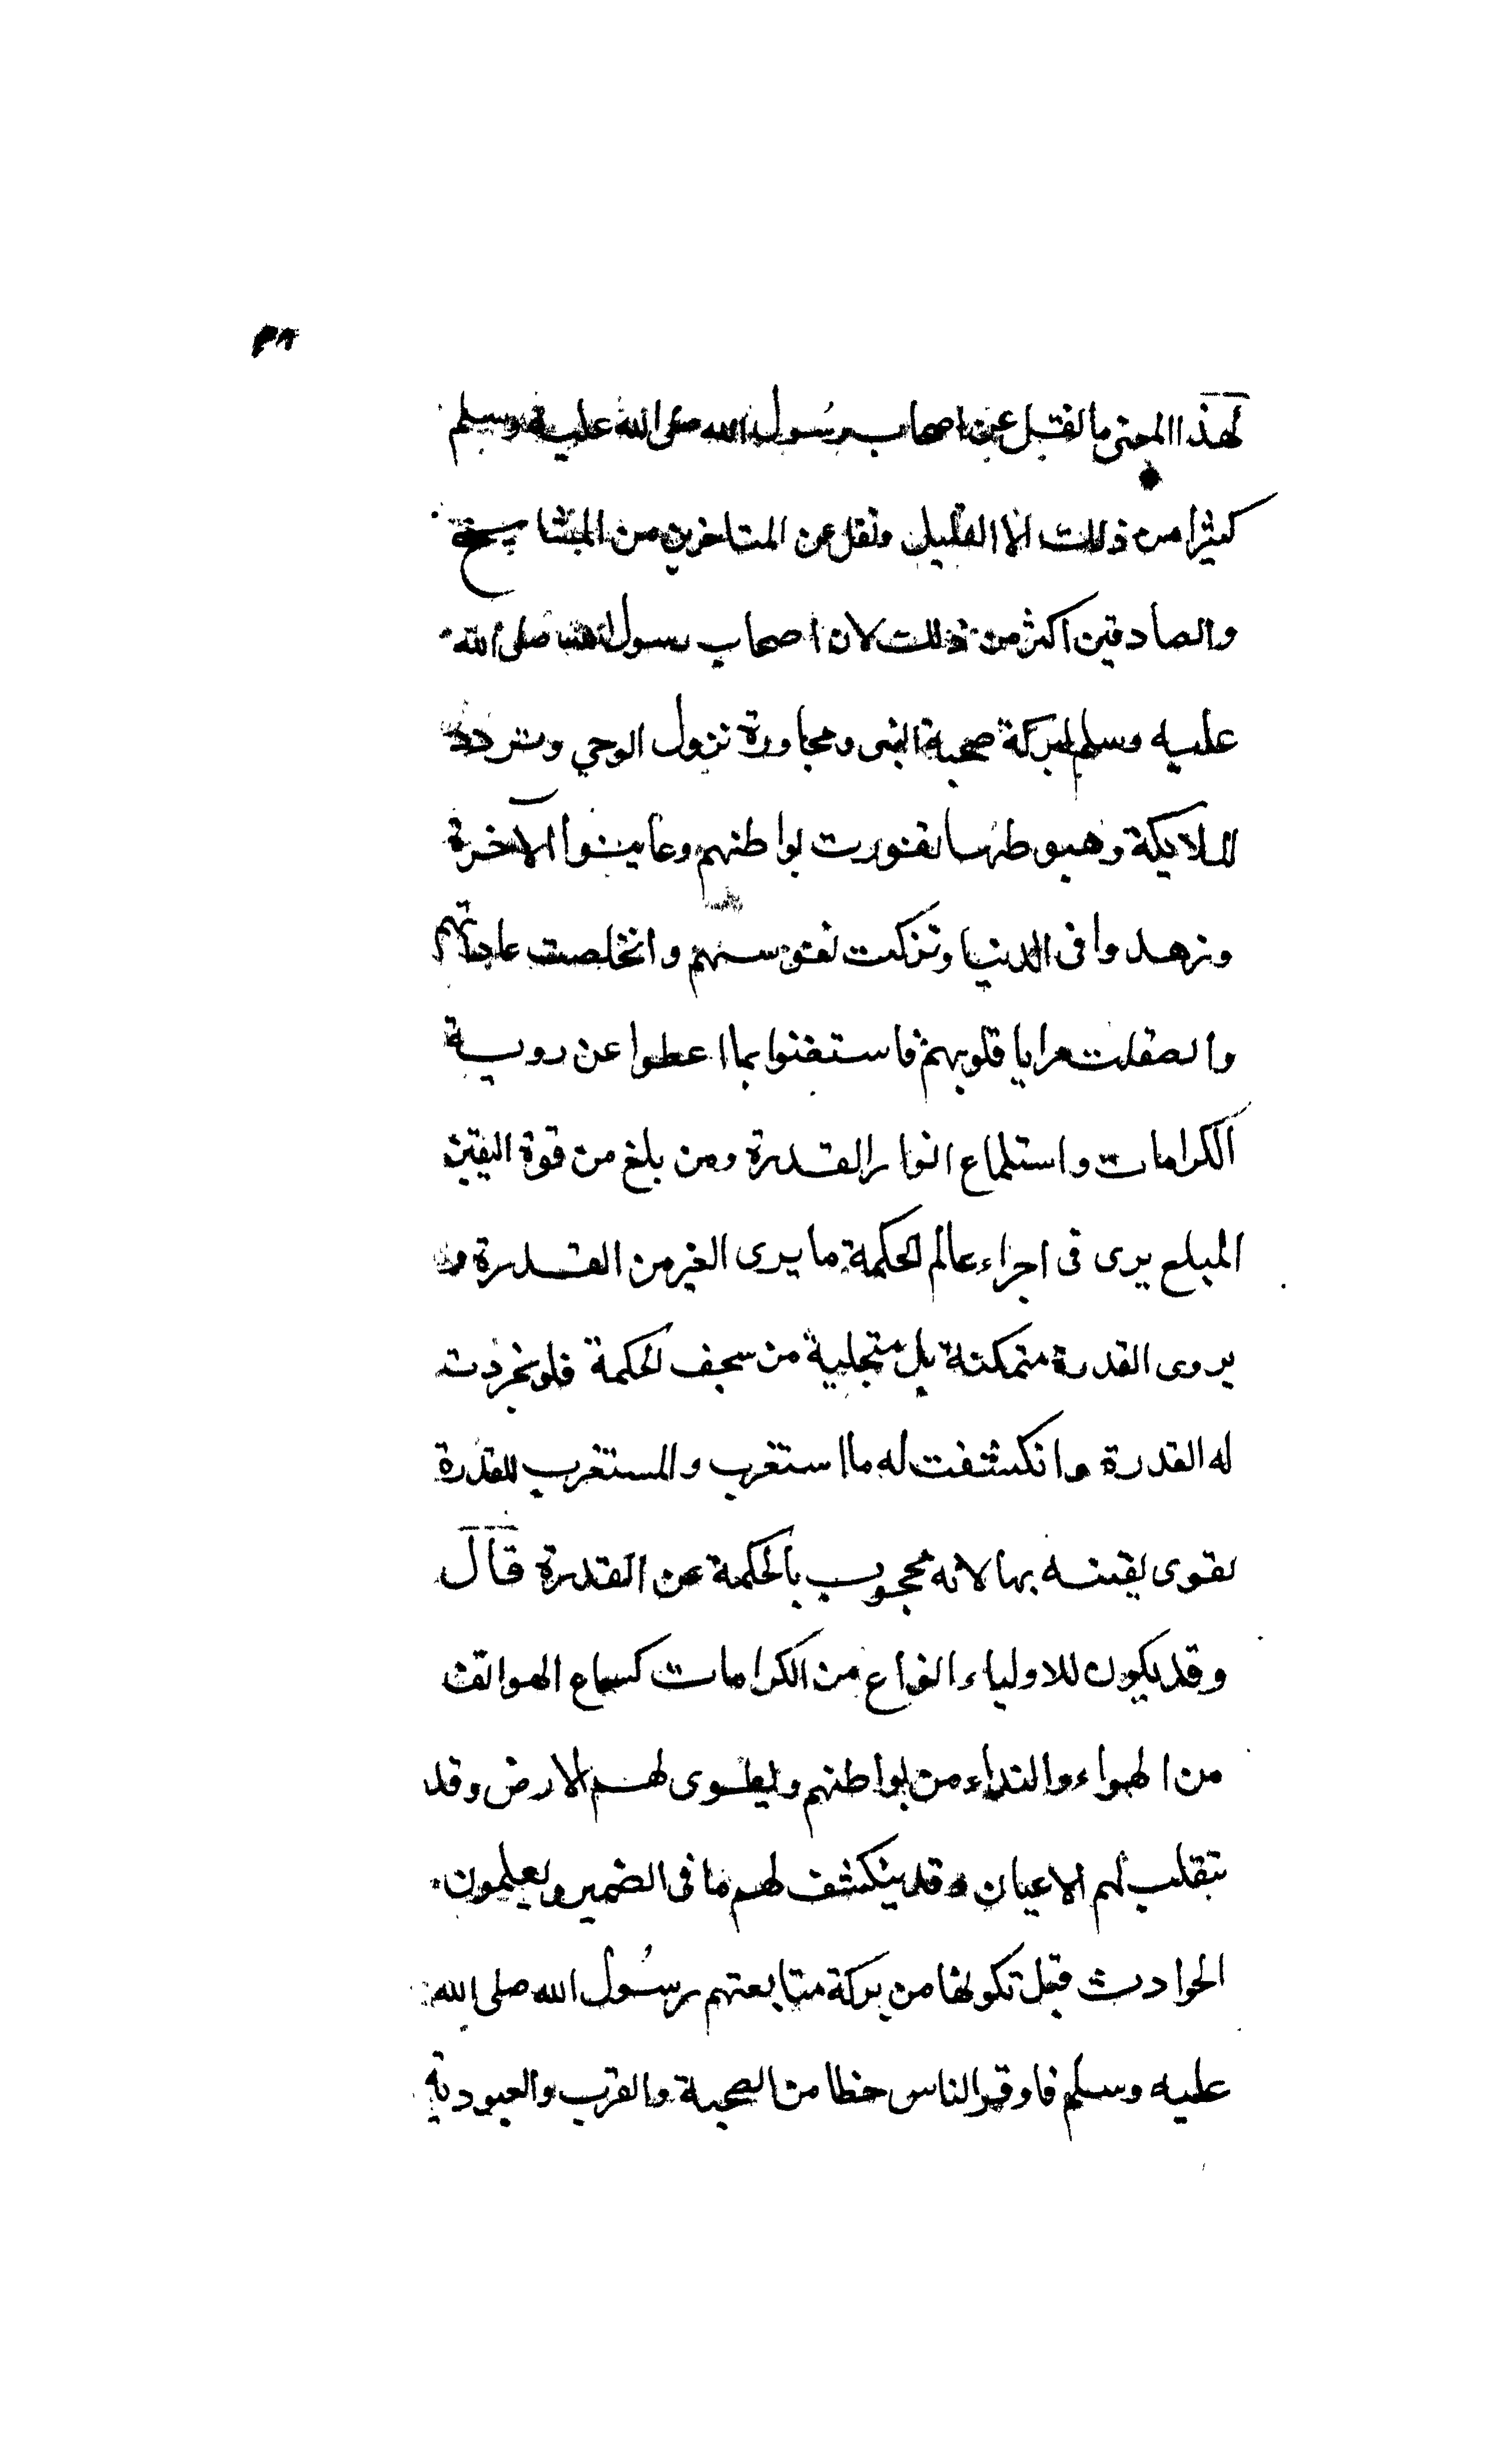 لهذا المعنى ما نقل عن اصحاب رسول الله صلى الله عليه وسلم
كثيرا من ذلك الا القليل ونقل عن المتاخرين من المشايخ
والصادقين اكثر من ذلك لان اصحاب رسول الله صلى الله
عليه وسلم لبركة صحبة النبى ومجاورة نزول الوحي وتردد
الملايكة وهبوطها تنورت بواطنهم وعاينوا الآخرة
وزهدوا فى الدنيا وتزكت نفوسهم وانخلصت عاداتهم
وانصقلت مرايا قلوبهم فاستغنوا بما اعطوا عن روية
الكرامات واستلماع انوار القدرة ومن بلغ من قوة اليقين
المبلع يرى فى اجزاء عالم الحكمة ما يرى الغير من القدرة و
يروى القدرة متمكنة بل متجلية من سجف الحكمة فلو تجردت
له القدرة وانكشفت له ما استغرب والمستغرب للقدرة
يقوى يقينه بها لانه محجوب بالحكمة عن القدرة قال
وقد يكون للاولياء انواع من الكرامات كسماع الهواتف
من الهواء والنداء من بواطنهم ويطوى لهم الارض وقد
تتقلب لهم الاعيان وقد ينكشف لهم ما فى الضمير ويعلمون
الحوادث قبل تكونها من بركة متابعتهم رسول الله صلى الله
عليه وسلم فاوفر الناس حظا من الصحبة والقرب والعبودية